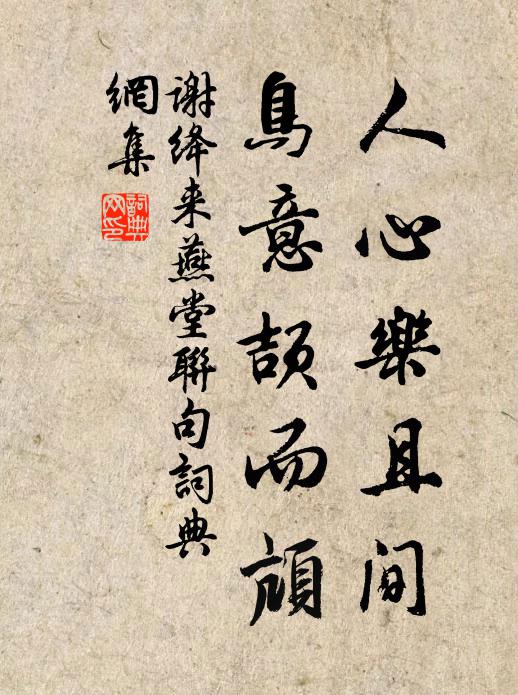 人心樂且間
鳥意頡而頏
谢绛来燕堂聯句詞典
網集
詞典
网印